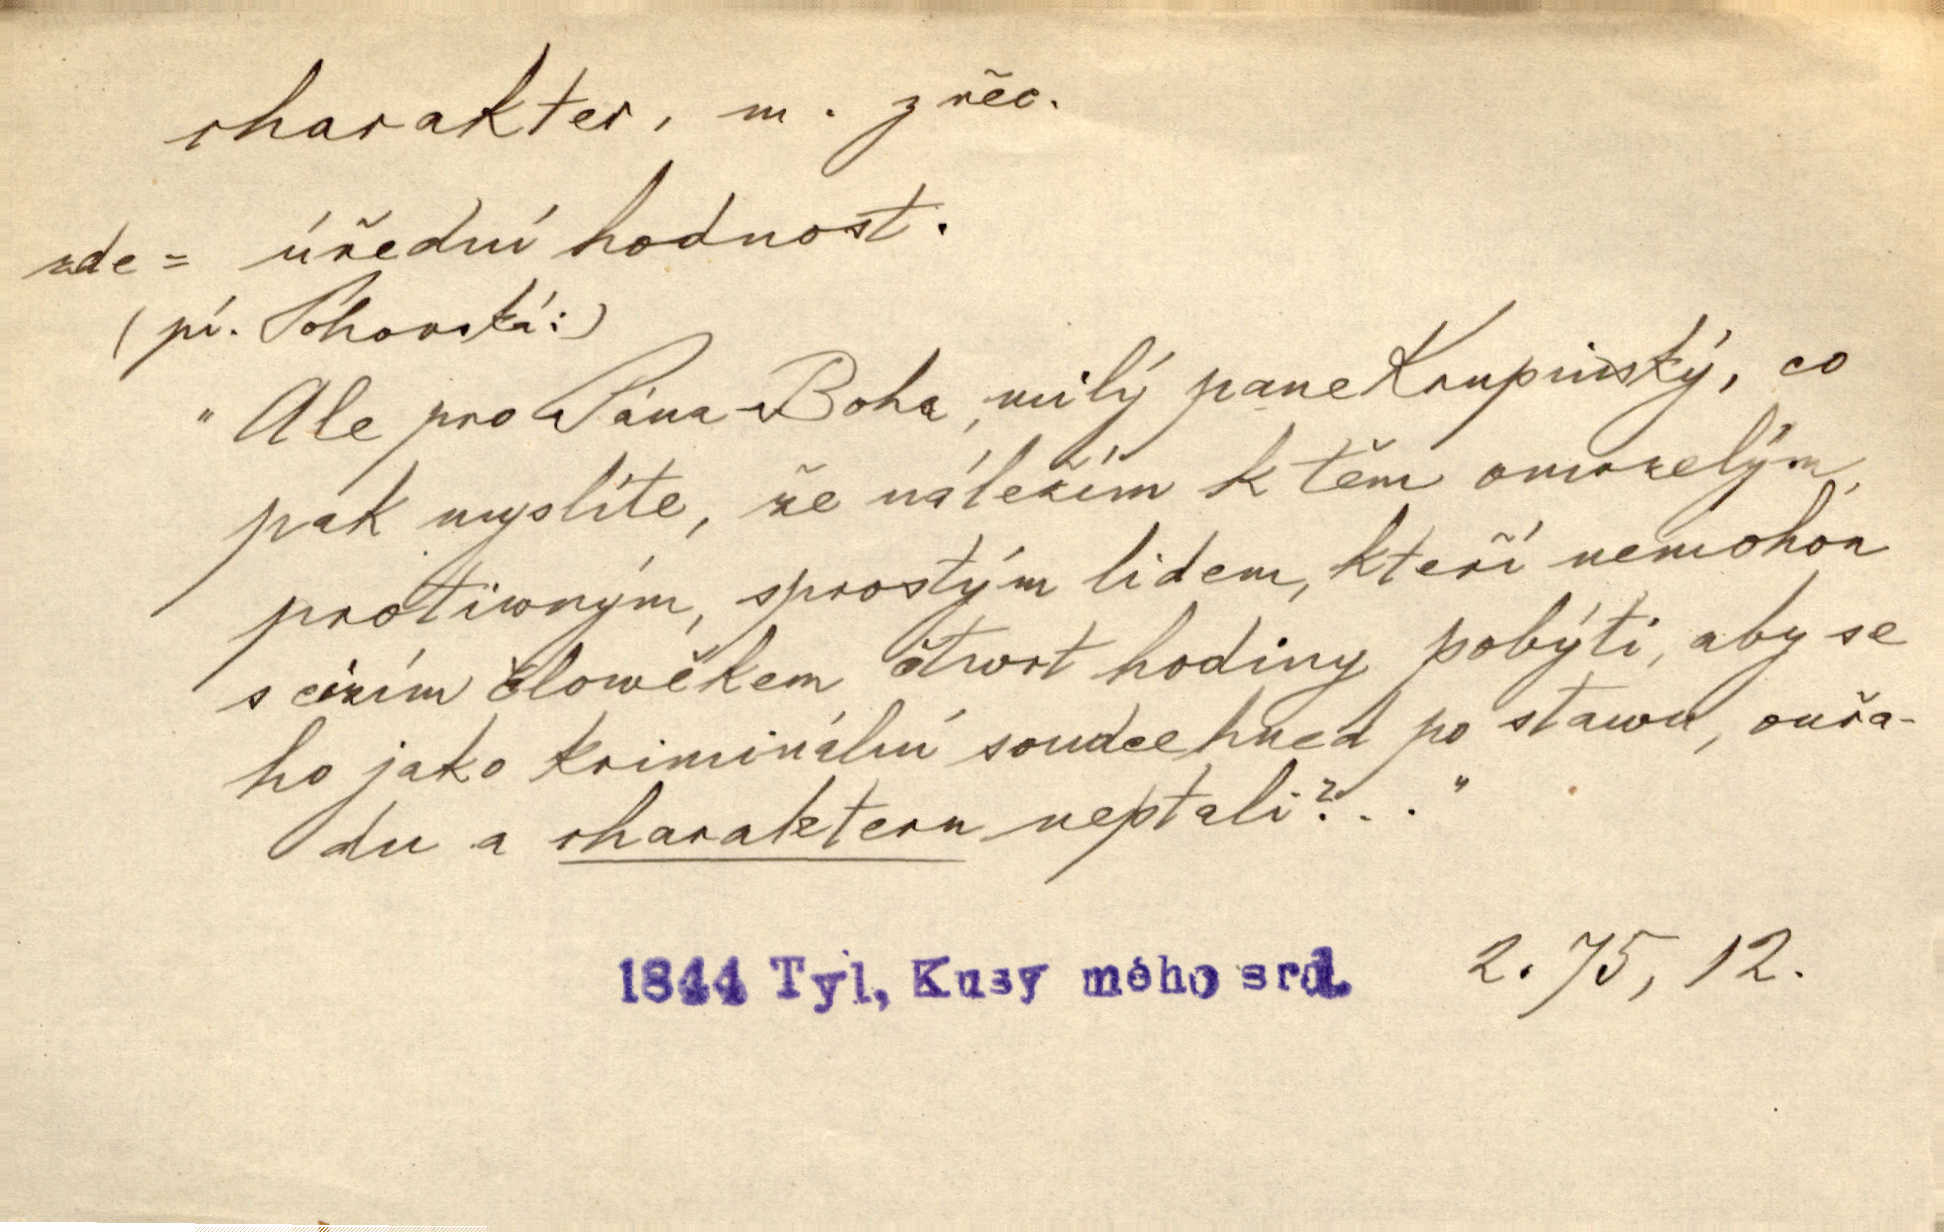 charakter, m. z řec.
zde = úřední hodnost.
(pí. Póhorská:)
"Ale pro Pána Boha, milý pane Krupinský, co
pak myslíte, že náležím k těm omrzelým,
protiwným, sprostým lidem, kteří nemohou
s cizím člowěkem čtwrt hodiny pobýti, aby se
ho jako kriminální soudce hned po stawu, ouřa-
du a charakteru neptali?..."
1844 Tyl, Kusy mého srd. 2. 75, 12.